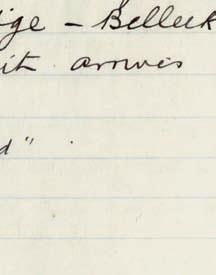 ige – Belleek
it arrives
d" .